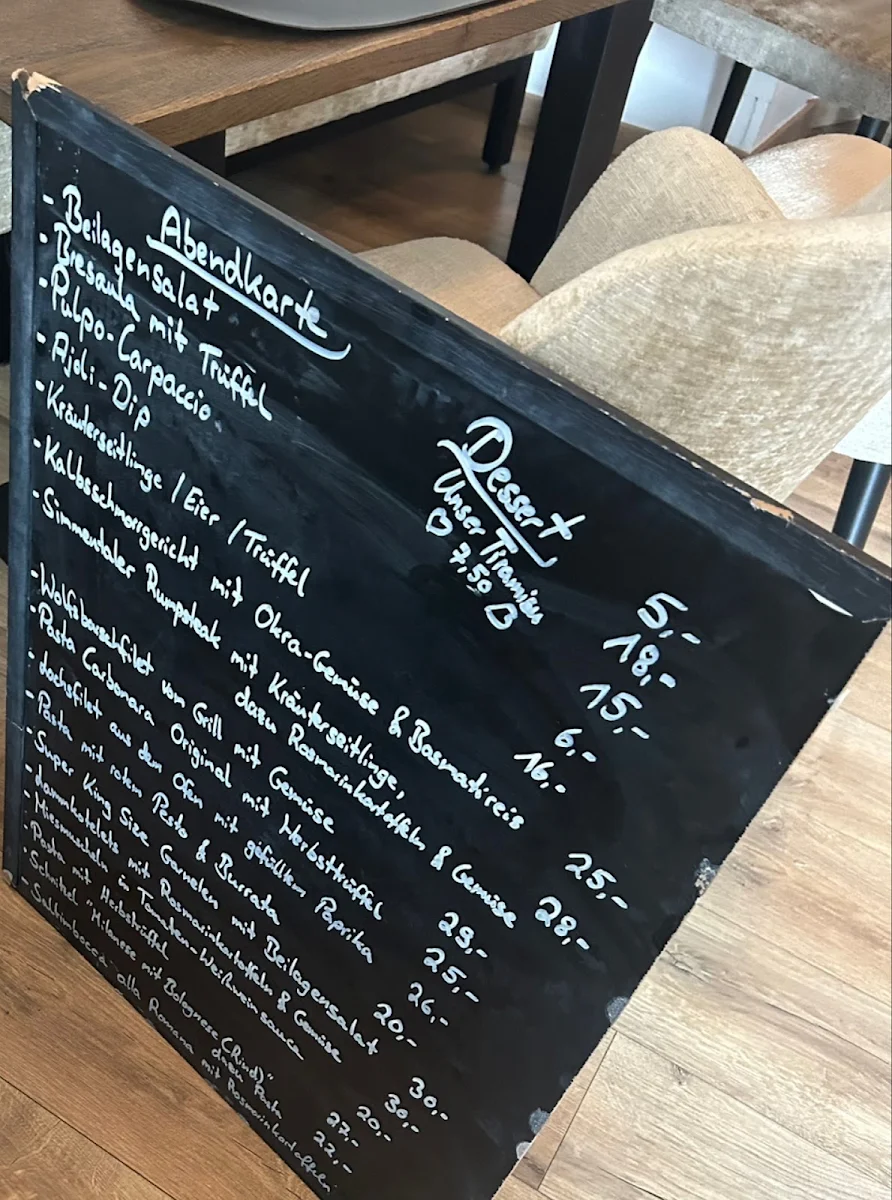 Abendkarte
- Beilagensalat
- Bresaula mit Trüffel
- Pulpo-Carpaccio
- Ajoli-Dip
- Kräuterseitlinge / Eier / Trüffel
- Kalbsschmorrgericht mit Okra-Gemüse & Basmatireis
- Simmentaler Rumpsteak mit Kräuterseitlinge,
dazu Rosmarinkartoffeln & Gemüse
- Wolfsbarschfilet vom Grill mit Gemüse
- Pasta Carbonara Original mit Herbsttrüffel
- Lachsfilet aus dem Ofen mit gefülltem Paprika
- Pasta mit rotem Pesto & Burrata
- Super King Size Garnelen mit Beilagensalat
- Lammkotelets mit Rosmarinkartoffeln & Gemüse
- Miesmuscheln in Tomaten-Weißweinsauce
- Pasta mit Herbsttrüffel
- Schnitzel "Milanese mit Bolognese (Rind)"
dazu Pasta
- Saltimbocca alla Romana mit Rosmarinkartoffeln
Dessert
Unser Tiramisu
♡ 7,50 ♡
5,-
18,-
15,-
6,-
16,-
25,-
28,-
29,-
25,-
26,-
20,-
30,-
30,-
20,-
27,-
22,-